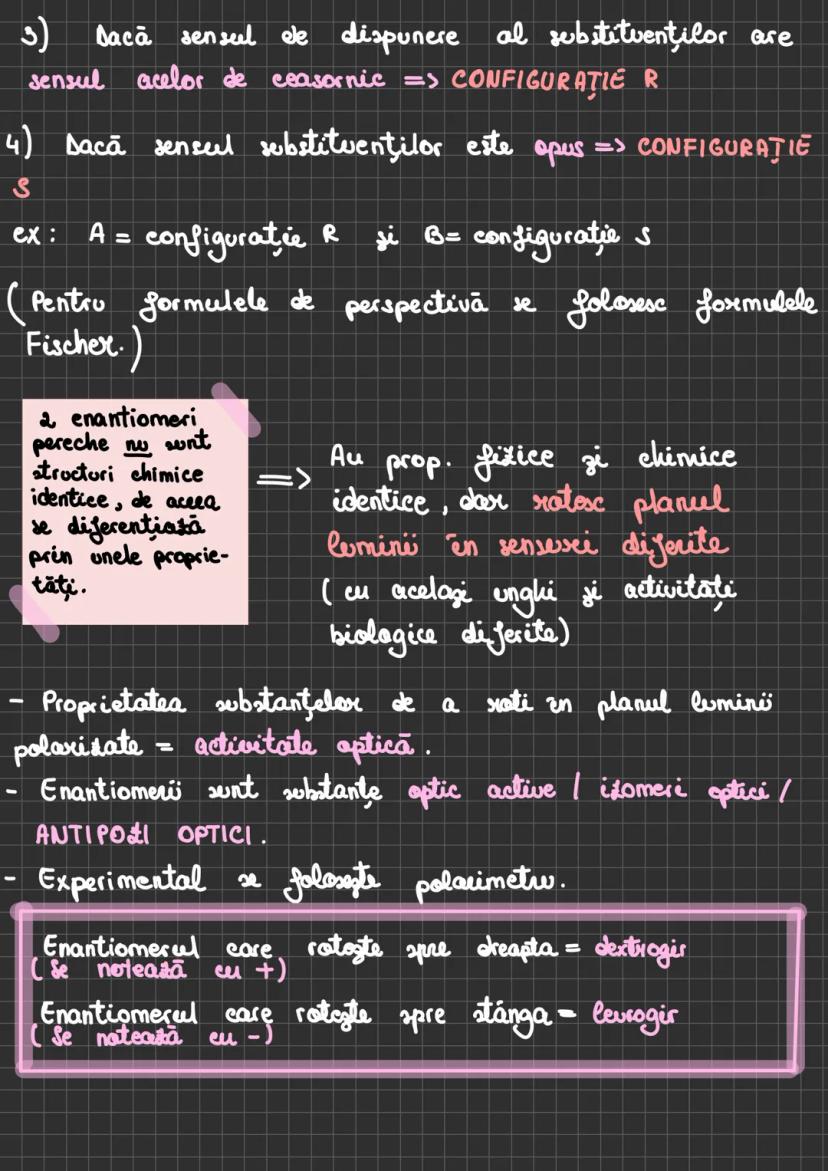 3) Dacă sensul de dispunere al substituenților are
sensul acelor de ceasornic => CONFIGURAȚIE R
4) Dacă sensul substituenților este opus => CONFIGURAȚIE
S
ex: A = configurație R și B= configurație S
(Pentru formulele de perspectivă se folosesc formulele
Fischer.)
2 enantiomeri
pereche nu sunt
structuri chimice
identice, de aceea
se diferențiază
prin unele proprie-
tăți.
=> Au prop. fizice și chimice
identice, dar rotesc planul
luminii în sensuri diferite
(cu același unghi și activități
biologice diferite)
- Proprietatea substanțelor de a roti în planul luminii
polarizate = activitate optică.
- Enantiomerii sunt substanțe optic active / izomeri optici /
ANTIPOZI OPTICI.
- Experimental se folosește polarimetru.
Enantiomerul care rotește spre dreapta = dextrogir
(Se notează cu +)
Enantiomerul care rotește spre stânga = levogir
(Se notează cu -)